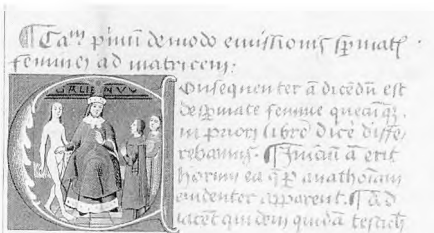 ¶ Ca^m pimũ de modo emissionis sp̃mat̃
feminei ad matricem:
GALIENVS
Onsequenter ã dicẽdũ est
de sp̃mate femine
in priori libro dice diffe
rebamus. ¶ Iniciũ ã erit
horum ea q̃ p̱ anathomiam
euidenter apparent. ¶ ad
iacent quidem quidã testicli